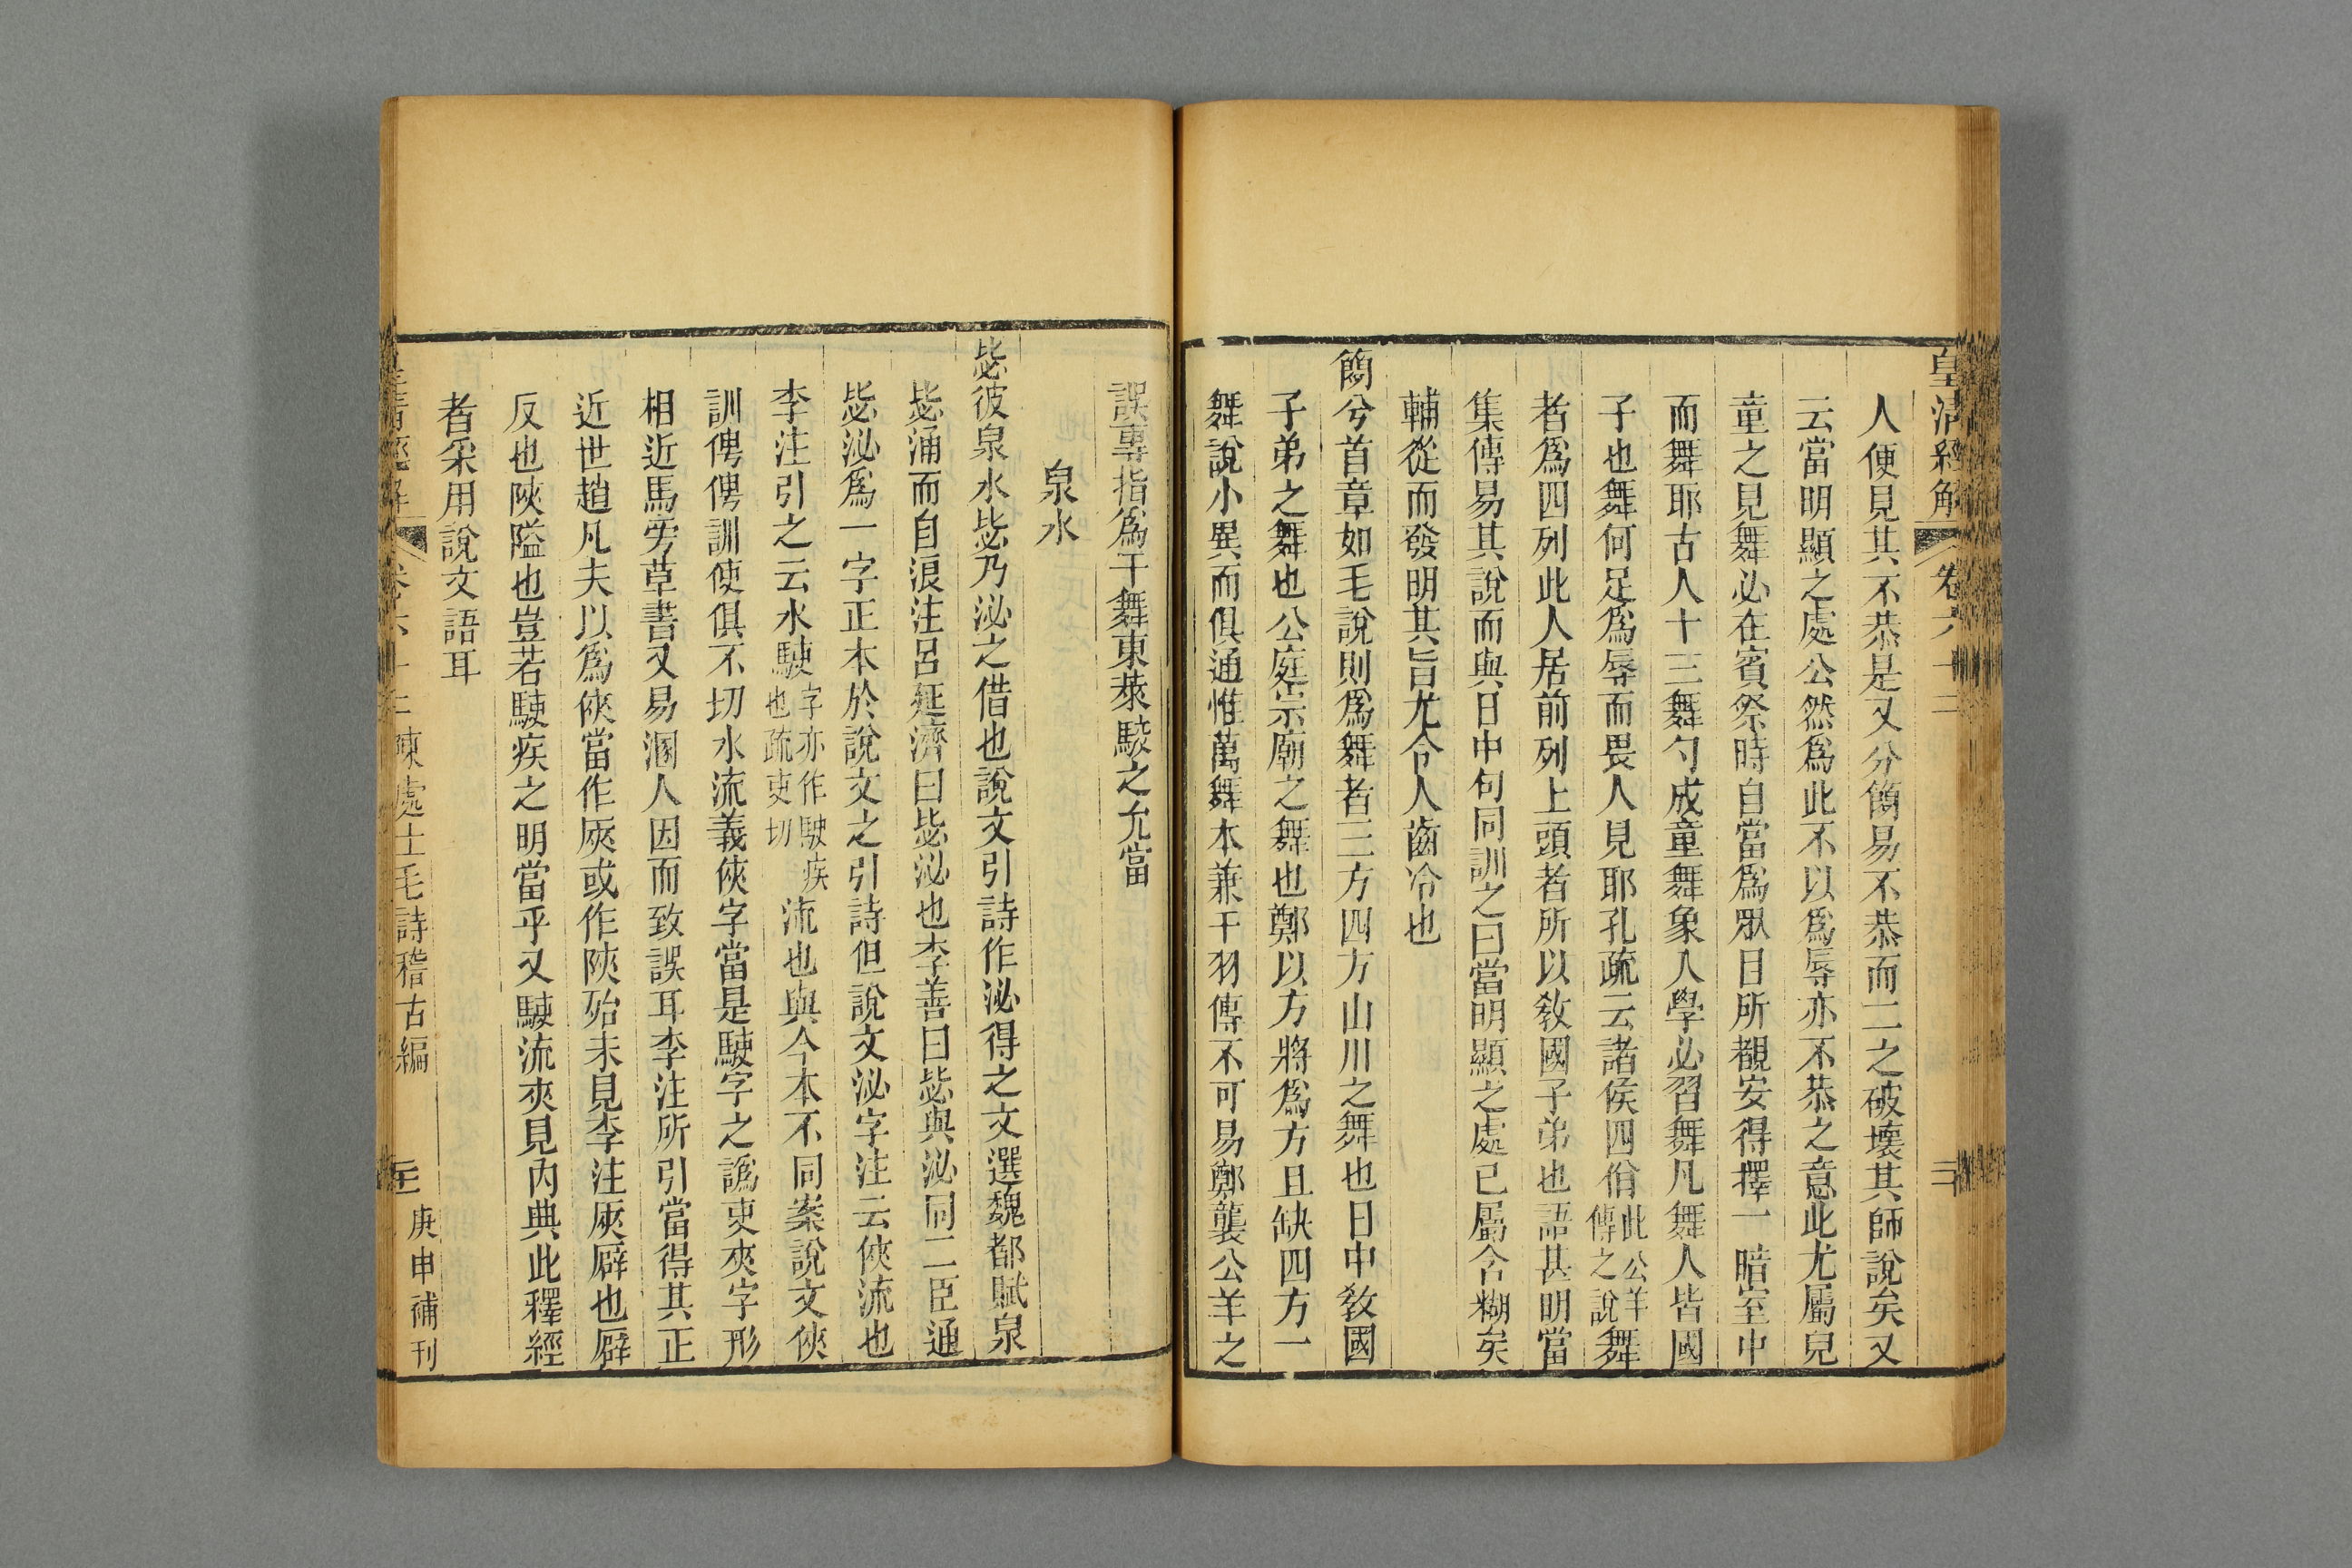 皇清經解 卷六十二
人便見其不恭是又分簡易不恭而二之破壞其師說矣又
云當明顯之處公然爲此不以爲辱亦不恭之意此尤屬兒
童之見舞必在賓祭時自當爲眾目所覩安得擇一暗室中
而舞耶古人十三舞勺成童舞象人學必習舞凡舞人皆國
子也舞何足爲辱而畏人見耶孔疏云諸侯四佾此公羊傳之說舞
者爲四列此人居前列上頭者所以敎國子弟也語甚明當
集傳易其說而與日中句同訓之曰當明顯之處已屬含糊矣
輔從而發明其旨尤令人齒冷也
簡兮首章如毛說則爲舞者三方四方山川之舞也日中敎國
子弟之舞也公庭宗廟之舞也鄭以方將爲方且缺四方一
舞說小異而俱通惟萬舞本兼干羽傳不可易鄭襲公羊之
誤專指爲干舞東萊駮之允當
泉水
毖彼泉水毖乃泌之借也說文引詩作泌得之文選魏都賦泉
毖涌而自浪注呂延濟曰毖泌也李善曰毖與泌同二臣通
毖泌爲一字正本於說文之引詩但說文泌字注云俠流也
李注引之云水駛字亦作駛疾也疏吏切流也與今本不同案說文俠
訓俜俜訓使俱不切水流義俠字當是駛字之譌吏夾字形
相近馬旁草書又易溷人因而致誤耳李注所引當得其正
近世趙凡夫以爲俠當作厎或作陝殆未見李注厎厬也厬
反也陝隘也豈若駛疾之明當乎又駛流夾見內典此釋經
者采用說文語耳
皇清經解 卷六十二 陳處士毛詩稽古編 庚申補刊